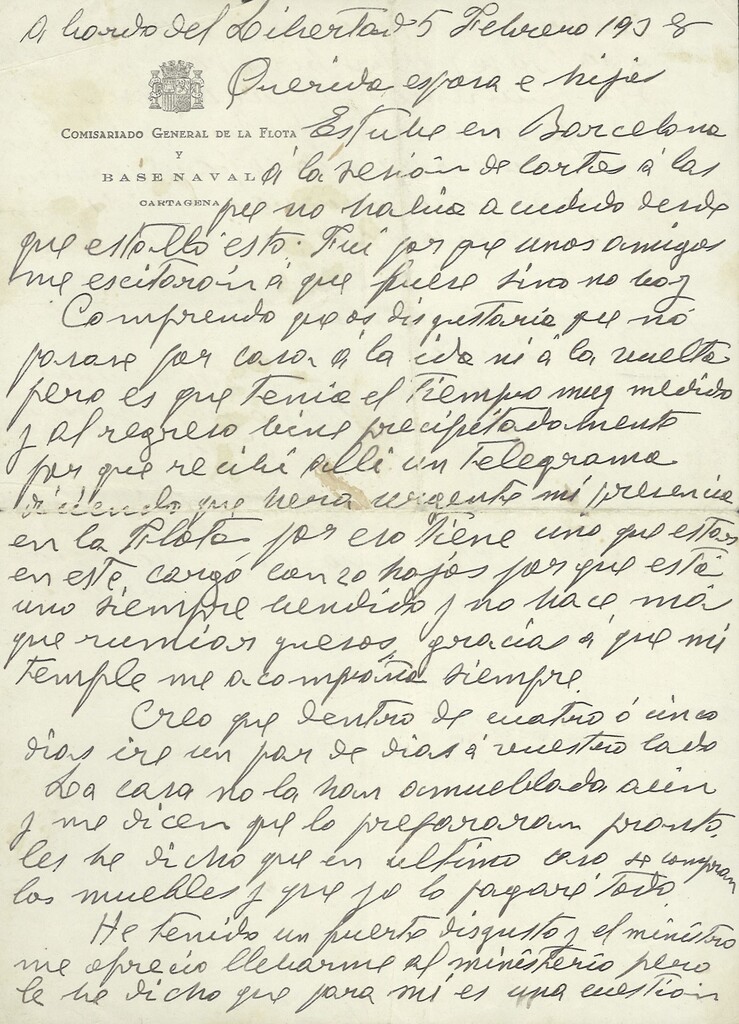 A bordo del Libertad 5 Febrero 1938
Querida esposa e hijos
COMISARIADO GENERAL DE LA FLOTA
Y
BASE NAVAL
CARTAGENA
Estube en Barcelona
á la sesión de cortes á las
que no había acudido desde
que estalló esto. Fui por que unos amigos
me escitarón á que fuese sino no boy
Comprendo que os disgustaria que nó
pasase por casa á la ida ni á la vuelta
pero es que tenia el tiempo muy medido
y al regreso bine precipitadamente
por que recibí alli un telegrama
diciendo que hera urgente mi presencia
en la Flota por eso tiene uno que estar
en este cargó con 20 hojos por que está
uno siempre bendido y no hace más
que rumiar quesos, gracias á que mi
temple me acompaña siempre.
Creo que dentro de cuatro ó cinco
dias ire un par de dias á vuestro lado
La casa no la han amueblado aún
y me dicen que lo prepararan pronto,
les he dicho que en ultimo caso se compran
los muebles y que yo lo pagaré todo.
He tenido un fuerte disgusto y el ministro
me ofrecio llebarme al ministerio pero
le he dicho que para mi es una cuestión